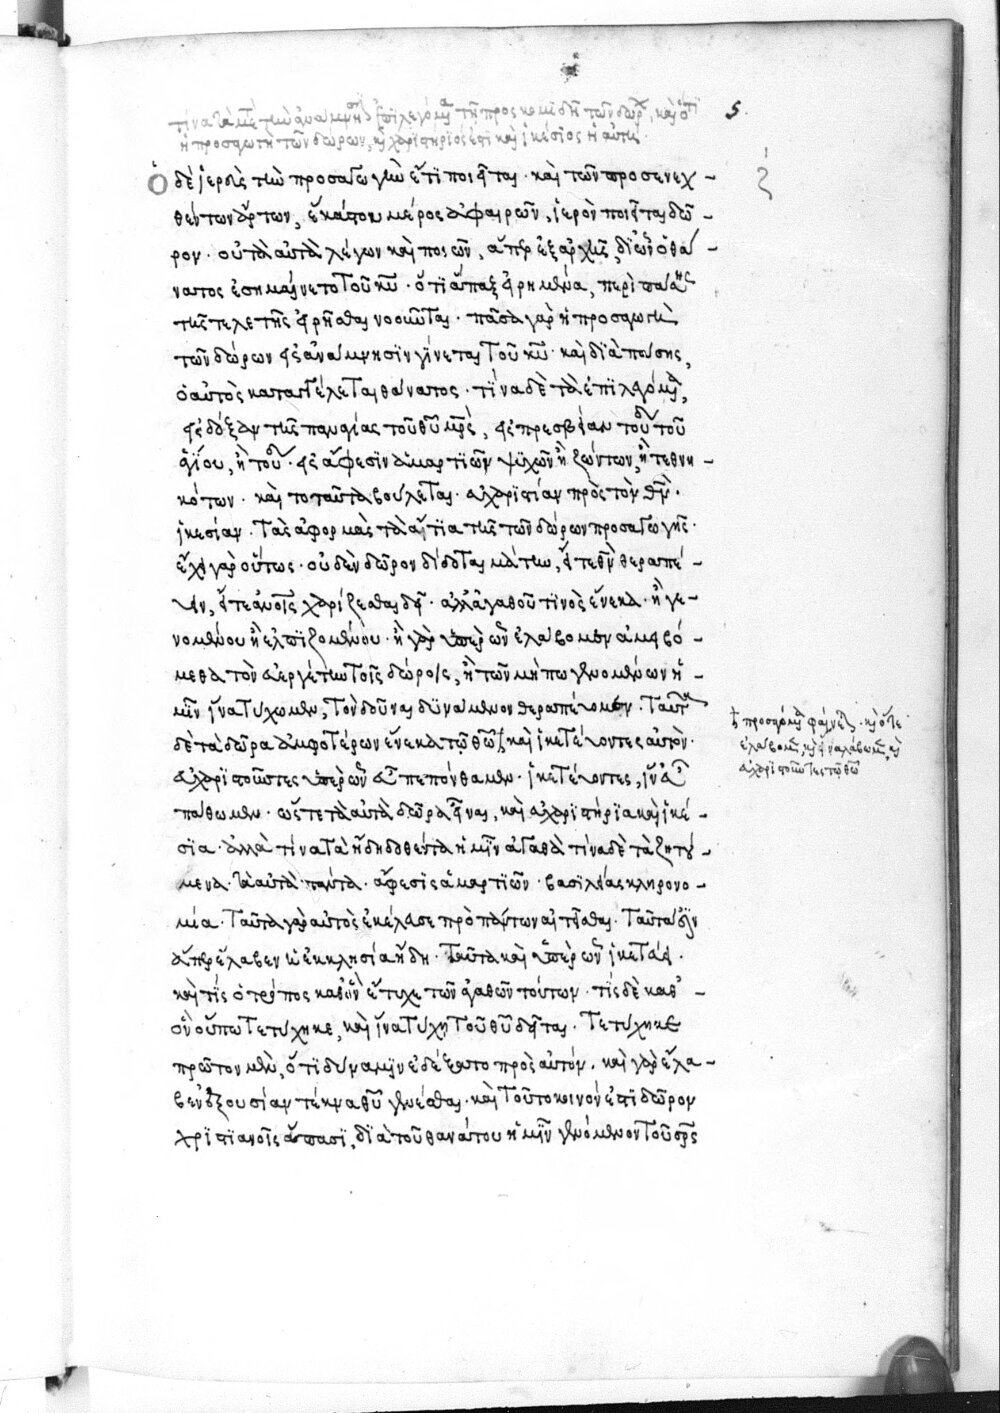 τίνα τὰ μετὰ τὴν ἀνάμνησιν ἐπιλεγόμενα τῇ προσκομιδῇ τῶν δώρων, καὶ ὅτι
ἡ προσαγωγὴ τῶν δώρων, εὐχαριστήριός ἐστι καὶ ἱκέσιος ἡ αὐτή
5
ζ
Ὁ δὲ ἱερεὺς τὴν προσαγωγὴν ἔτι ποιεῖται· καὶ τῶν προσενεχ-
θέντων ἄρτων, ἑκάστου μέρος ἀφαιρῶν, ἱερὸν ποιεῖται δῶ-
ρον· οὐ τὰ αὐτὰ λέγων καὶ ποιῶν, ἅπερ ἐξαρχῆς, δι' ὧν ὁ θά-
νατος ἐσημαίνετο τοῦ κυ· ὅτι ἅπαξ εἰρημένα, περὶ πάσης
τῆς τελετῆς εἰρῆσθαι νοοῦνται· πᾶσα γὰρ ἡ προσαγωγὴ
τῶν δώρων εἰς ἀνάμνησιν γίνεται τοῦ κυ· καὶ διὰ πάσης,
ὁ αὐτὸς καταγγέλεται θάνατος· τίνα δὲ τὰ ἐπιλεγόμενα,
εἰς δόξαν τῆς παναγίας τοῦ θυ μρς, εἰς πρεσβείαν τοῦδε τοῦ
ἁγίου, ἢ τοῦδε· εἰς ἄφεσιν ἁμαρτιῶν ψυχῶν ἢ ζώντων, ἢ τεθνη-
κότων· καὶ τί ταῦτα βούλεται· εὐχαριστίαν πρὸς τὸν θν·
ἱκεσίαν· τὰς ἀφορμὰς τὰ αἴτια τῆς τῶν δώρων προσαγωγῆς·
ἔχει γὰρ οὕτως· οὐδὲν δῶρον δίδοται μάτην, εἴτε θν θεραπεύ-
ειν, εἴτε ἀνοις χαρίζεσθαι δεῖ· ἀλλ' ἀγαθοῦ τινὸς ἕνεκα· ἢ γε-
νομένου ἢ ἐλπιζομένου· ἢ γὰρ ὑπὲρ ὧν ἐλάβομεν ἀμειβό-
μεθα τὸν εὐεργέτην τοῖς δώροις, ἢ τῶν μήπω γενομένων ἡ-
μῖν ἵνα τύχωμεν, τὸν δοῦναι δυνάμενον θεραπεύομεν· ταυτὶ
δὲ τὰ δῶρα ἀμφοτέρων ἕνεκα τῷ θω καὶ ἱκετεύοντες αὐτὸν·
εὐχαριστοῦντες ὑπὲρ ὧν εὖ πεπόνθαμεν· ἱκετεύοντες, ἵν' εὖ
πάθωμεν· ὥστε τὰ αὐτὰ δῶρα εἶναι, καὶ εὐχαριστήρια καὶ ἱκέ-
σια· ἀλλὰ τίνα τὰ ἤδη δοθέντα ἡμῖν ἀγαθὰ τίνα δὲ τὰ ζητού-
μενα· τὰ αὐτὰ πάντα· ἄφεσις ἁμαρτιῶν· βασιλείας κληρονο-
μία· ταῦτα γὰρ αὐτὸς ἐκέλευσε πρὸ πάντων αἰτεῖσθαι· ταῦτά ἐστιν
ἅπερ ἔλαβεν ἡ ἐκκλησία ἤδη· ταῦτα καὶ ὑπὲρ ὧν ἱκετεύει·
καὶ τίς ὁ τρόπος καθ' ὃν ἔτυχε τῶν ἀγαθῶν τούτων· τίς δὲ καθ'-
ὃν οὔπω τετύχηκε, καὶ ἵνα τύχῃ τοῦ θυ δεῖται· τετύχηκε
πρῶτον μὲν, ὅτι δύναμιν ἐδέξατο πρὸς αὐτόν· καὶ γὰρ ἔλα-
βεν ἐξουσίαν τέκνα θυ γενέσθαι· καὶ τοῦτο κοινόν ἐστι δῶρον
χριστιανοῖς ἅπασι, διὰ τοῦ θανάτου ἡμῖν γενόμενον τοῦ σρς
προσάγομεν
ἐλάβομεν, καὶ ἵνα λάβωμεν, καὶ
εὐχαριστοῦντες τῷ θω